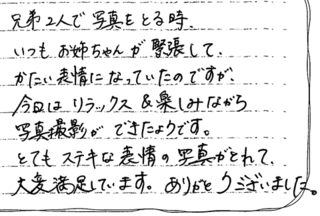 兄弟2人で写真をとる時、
いつもお姉ちゃんが緊張して、
かたい表情になっていたのですが、
今回はリラックス&楽しみながら
写真撮影ができたようです。
とてもステキな表情の写真がとれて、
大変満足しています。ありがとうございました。